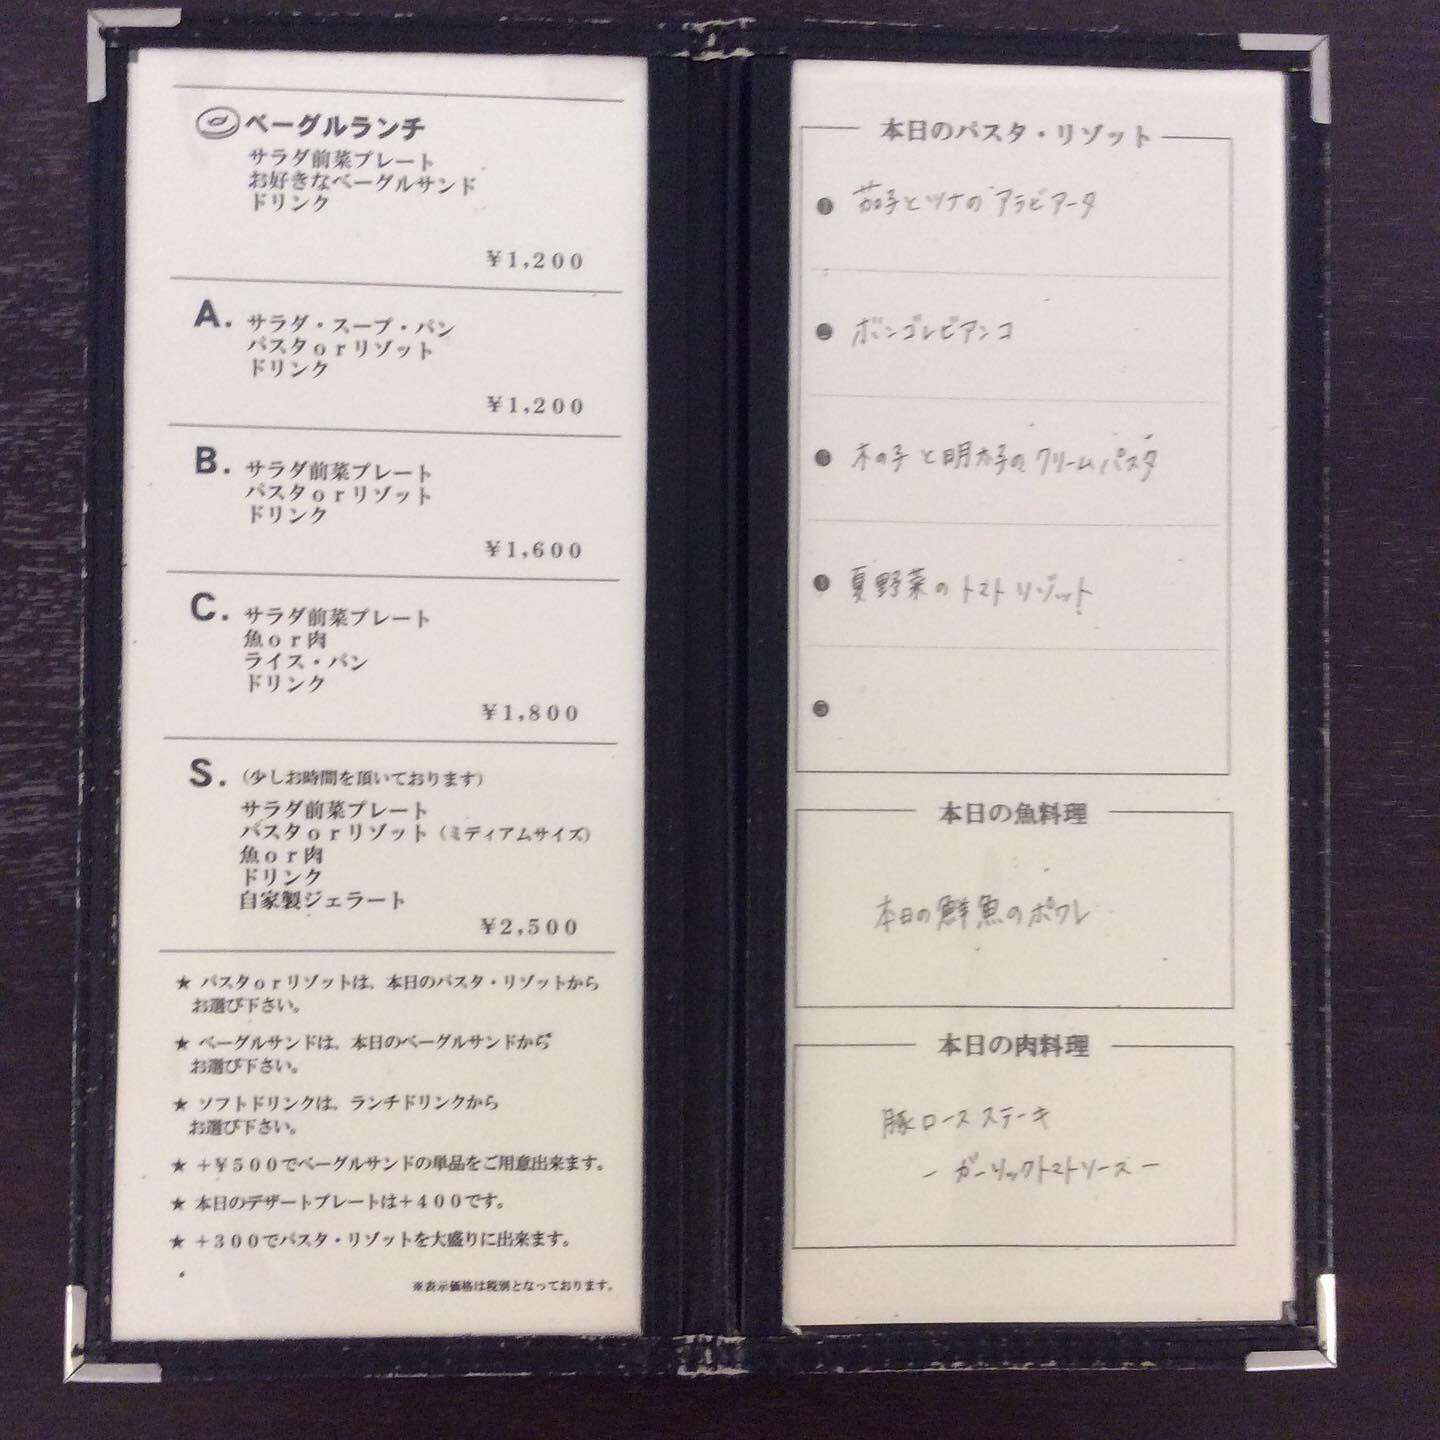 ベーグルランチ
サラダ前菜プレート
お好きなベーグルサンド
ドリンク
¥1,200
A. サラダ・スープ・パン
パスタorリゾット
ドリンク
¥1,200
B. サラダ前菜プレート
パスタorリゾット
ドリンク
¥1,600
C. サラダ前菜プレート
魚or肉
ライス・パン
ドリンク
¥1,800
S. (少しお時間を頂いております)
サラダ前菜プレート
パスタorリゾット(ミディアムサイズ)
魚or肉
ドリンク
自家製ジェラート
¥2,500
★ パスタorリゾットは、本日のパスタ・リゾットから
お選び下さい。
★ ベーグルサンドは、本日のベーグルサンドから
お選び下さい。
★ ソフトドリンクは、ランチドリンクから
お選び下さい。
★ +¥500でベーグルサンドの単品をご用意出来ます。
★ 本日のデザートプレートは+400です。
★ +300でパスタ・リゾットを大盛りに出来ます。
※表示価格は税別となっております。
本日のパスタ・リゾット
❶ 茄子とツナのアラビアータ
❷ ボンゴレビアンコ
❸ 木の子と明太子のクリームパスタ
❹ 夏野菜のトマトリゾット
❺
本日の魚料理
本日の鮮魚のポワレ
本日の肉料理
豚ロースステーキ
- ガーリックトマトソース -